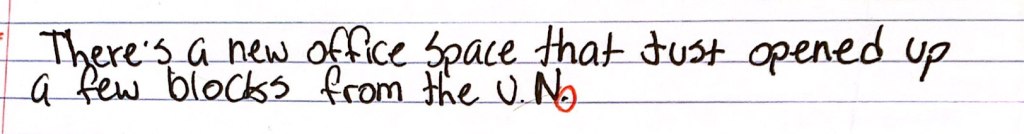 There's a new office space that just opened up
a few blocks from the U.N.